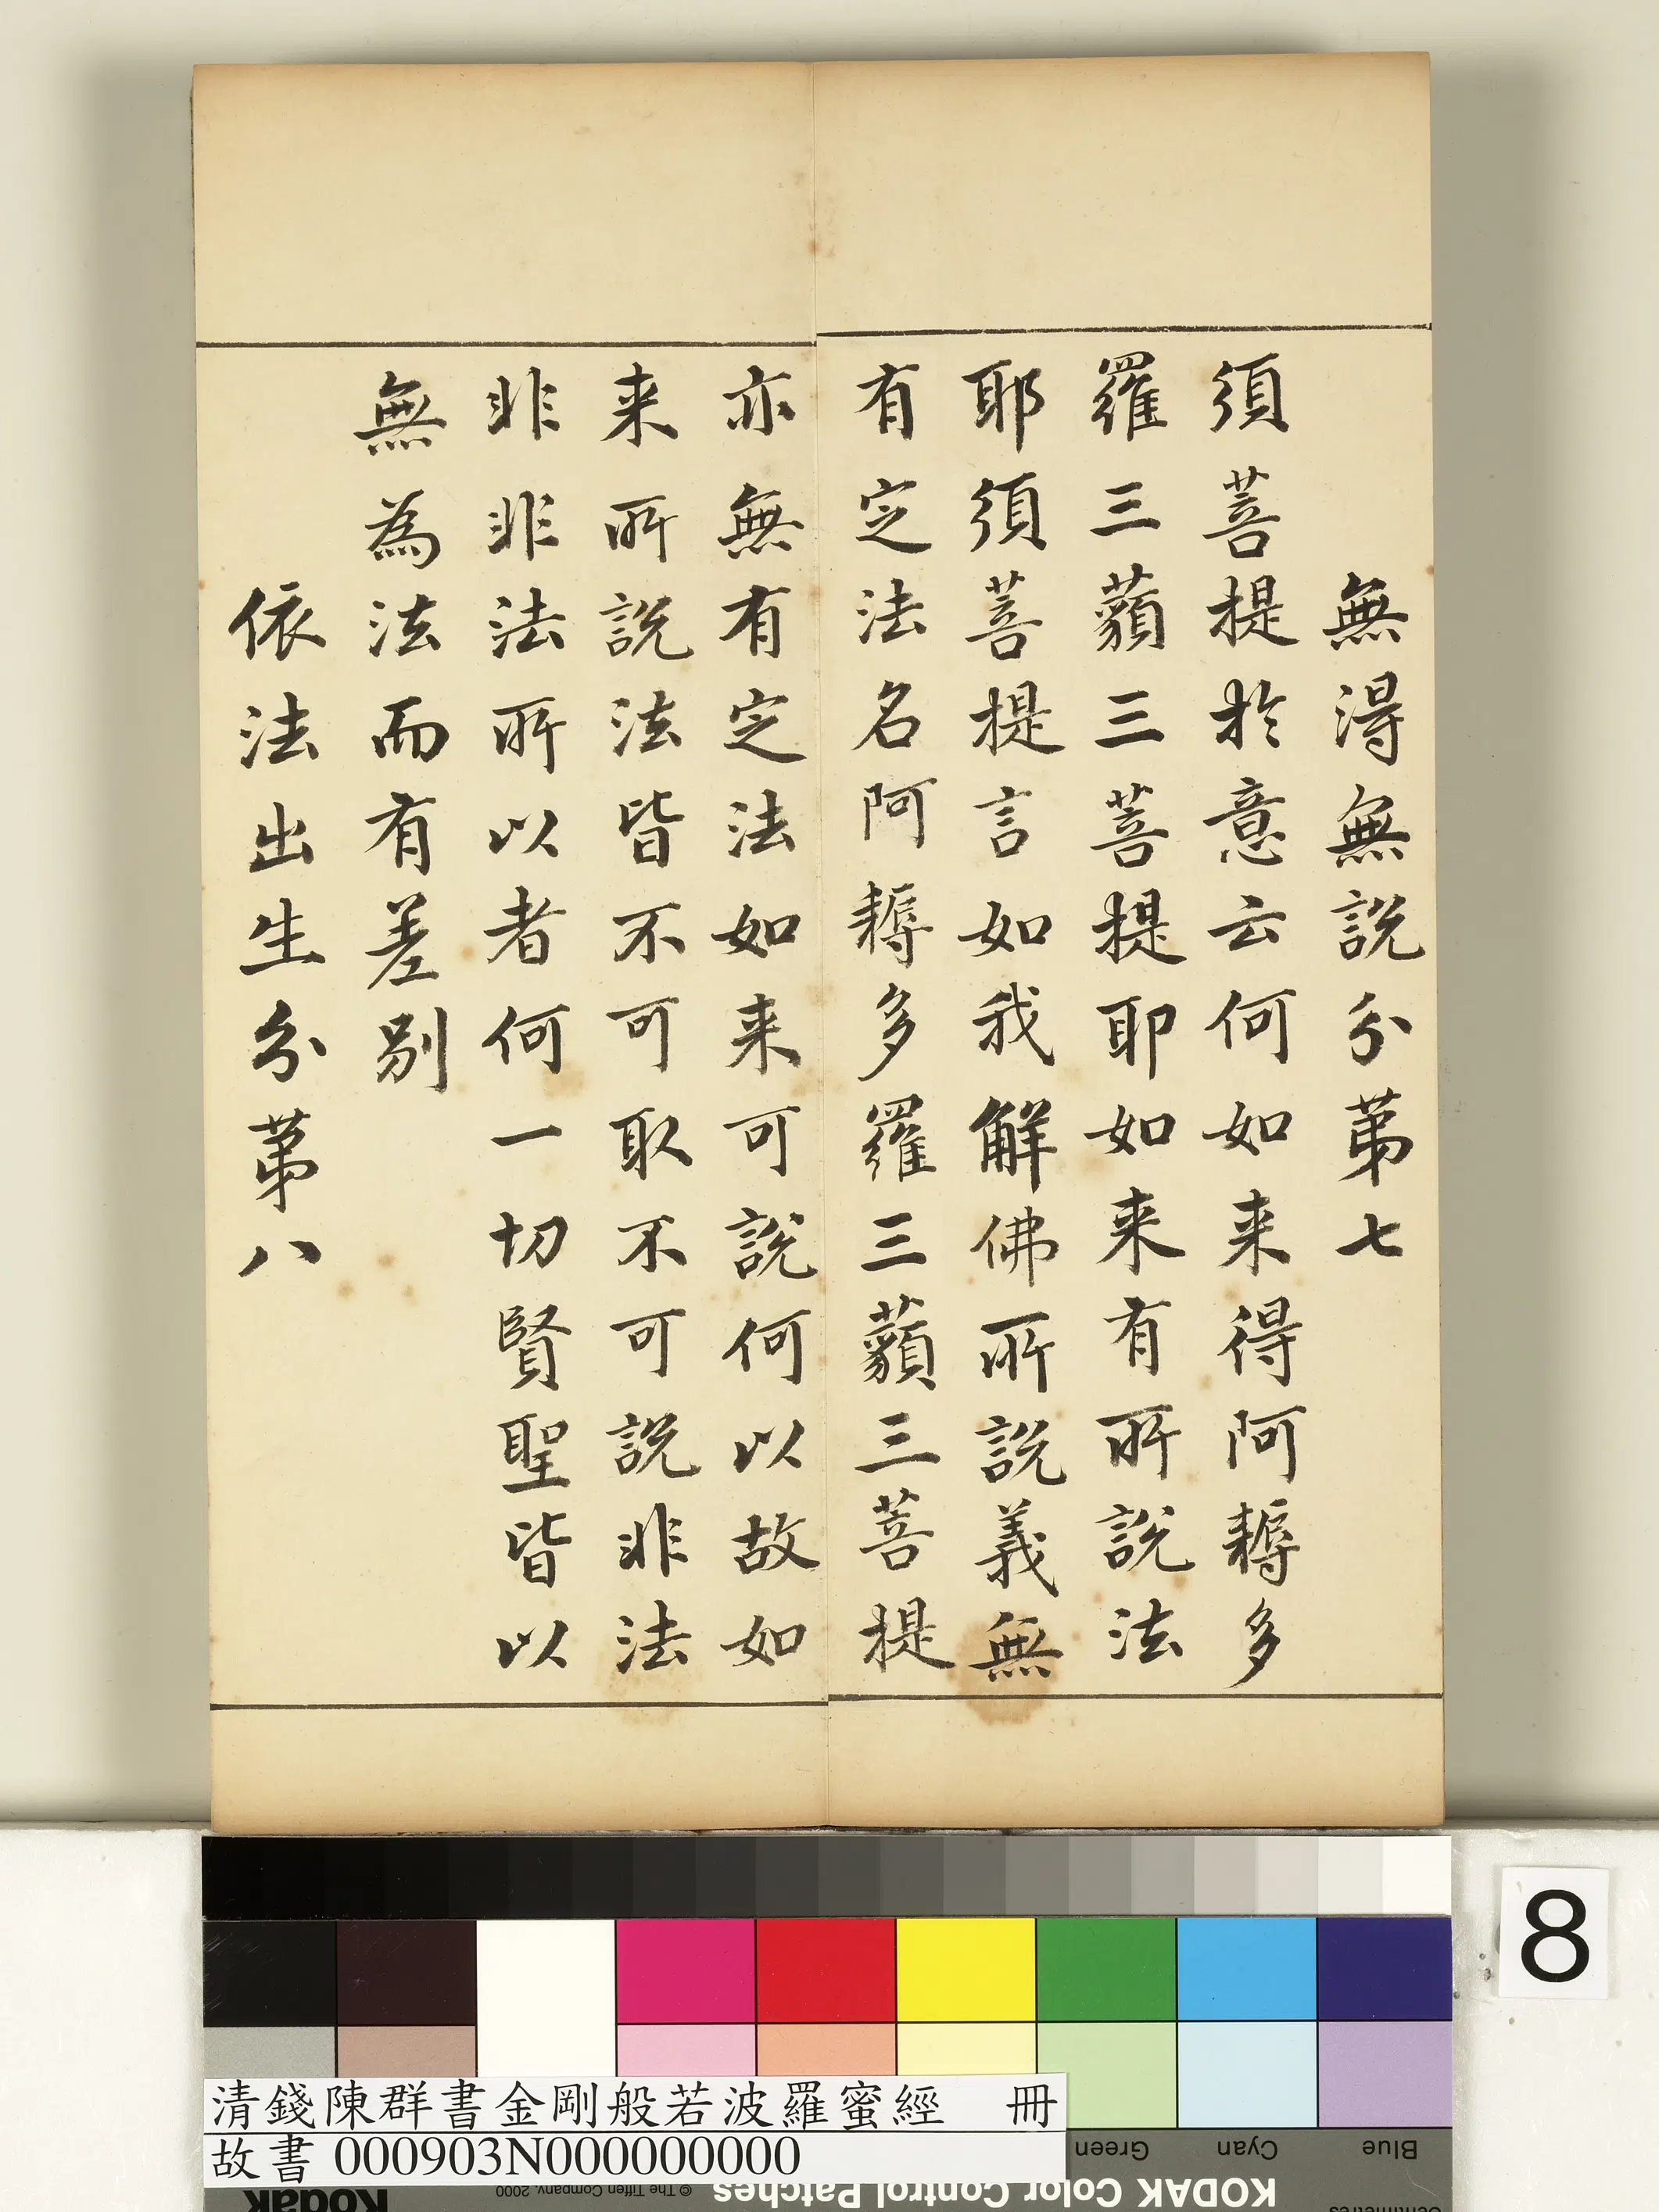 無得無説分第七
須菩提於意云何如来得阿耨多
羅三藐三菩提耶如来有所説法
耶須菩提言如我解佛所説義無
有定法名阿耨多羅三藐三菩提
亦無有定法如来可説何以故如
来所説法皆不可取不可説非法
非非法所以者何一切賢聖皆以
無為法而有差别
依法出生分第八
8
清錢陳群書金剛般若波羅蜜經 冊
故書 000903N000000000
Green Cyan Blue
Kodak © The Tiffen Company, 2000 KODAK Color Control Patches
Centimetres